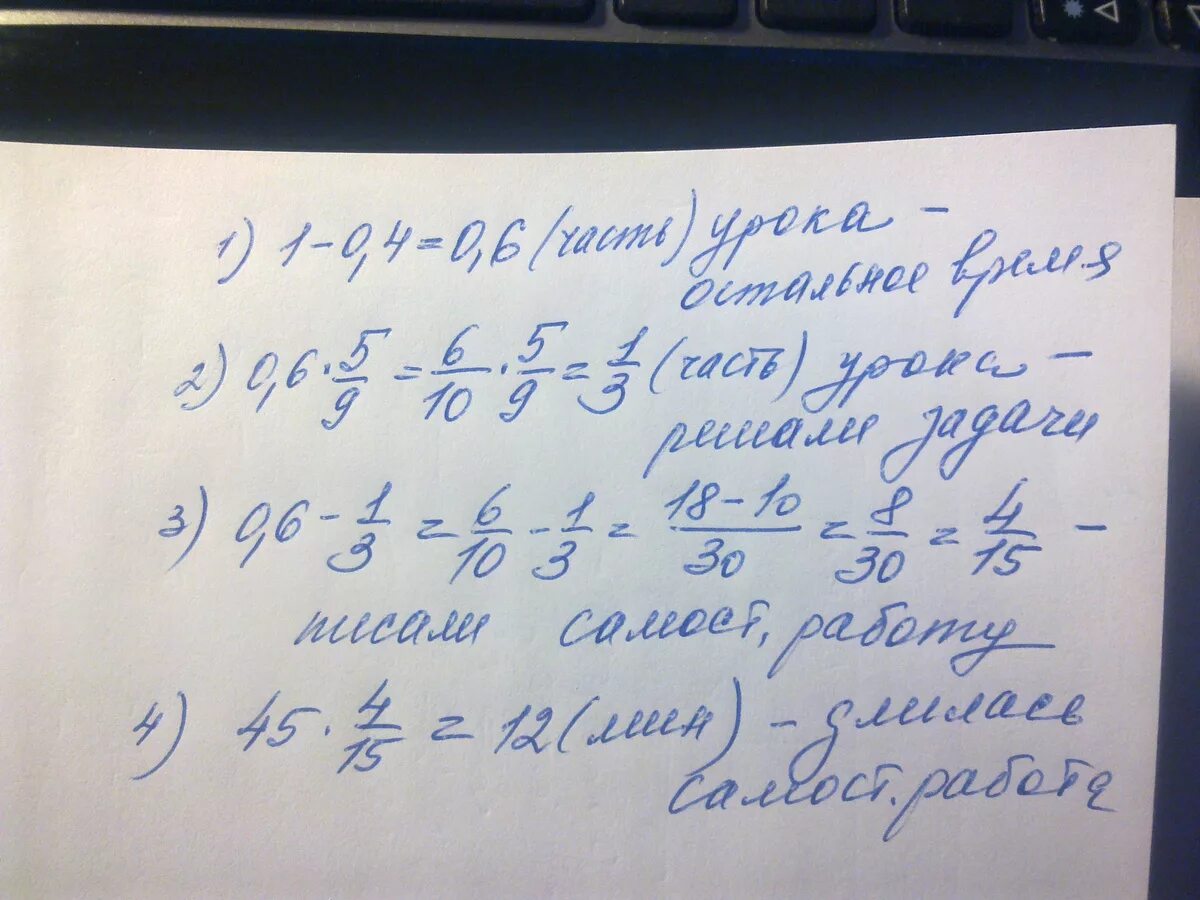 1) 1 - 0,4 = 0,6 (часть) урока -
остальное время
2) 0,6 · 5/9 = 6/10 · 5/9 = 1/3 (часть) урока -
решали задачи
3) 0,6 - 1/3 = 6/10 - 1/3 = (18 - 10)/30 = 8/30 = 4/15 -
писали самост. работу
4) 45 · 4/15 = 12 (мин) - длилась
самост. работа